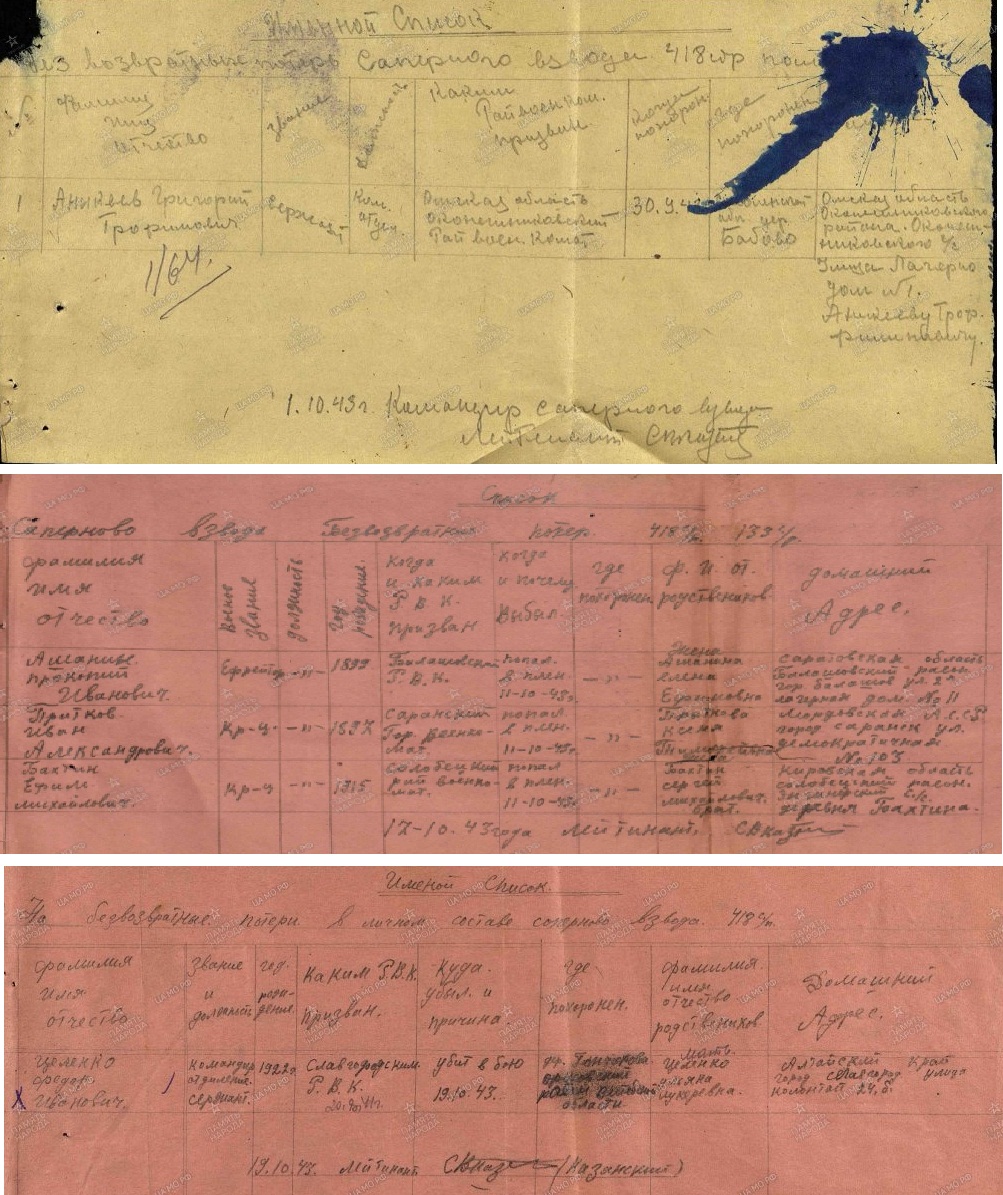 Именной Список
без возвратные потерь Саперного взвода 418 стр
Фамилия
имя
отчество
звание
Каким
Райвоенком.
призван
Когда
похорон.
где
похоронен
1 Аникеев Григорий
Трофимович
сержант
Ком.
отдел.
Омская область
Оконешниковский
Рай воен. Комат
30.9.4
дер
Бабово
Омская область
Оконешниковского
района. Оконеш-
никовского
Улица Лагерно
дом №1.
Аникееву Троф-
1/64.
1.10.43г. Командир саперного взвода
Лейтенант
Список
Саперново взвода Безвозвратной потер. 418 с/р 133 с/р.
фамилия
имя
отчество
военое
звание
должность
год
рождение.
Когда
и каким
Р.В.К.
призван
когда
и почему
выбыл.
где
похоронен.
Ф. И. от.
родствеников
домашний
Адрес.
прокопий
Иванович.
Ефрейтор -"- 1899
Балашовской
Р.В.К.
попал.
в плен.
11-10-43г.
-"-
Жена
Ананина
елена
Ефимовна
саратовская область
Балашовский район.
гор. балашов ул. 2я
лагерная дом. № 11
Иван
Александрович.
Кр-ц -"- 1897
Саранский
Гор. военко-
мат.
попал
в плн.
11-10-43г.
-"-
Мордовская А.С.С.Р
город саранск ул.
демократичная
№ 103
Бахтин
Ефим
михайлович.
Кр-ц -"- 1915
рай военко-
мат.
попал
в плен.
11-10-43г
-"-
Бахтин
сергей
михайлович.
брат.
Кировская область
район.
деревня Бахтина.
17-10.43 года Лейтинант.
Именой Список.
На безвозвратные потери в личном составе саперново взвода 418 с/п.
фамилия
имя
отчество
звание
и
должность
год.
рожи-
дения.
Каким Р.В.К.
призван.
Куда.
убыл. и
причина
где
похоронен.
фамилия.
имя
отчество
родствеников.
Домашний
Адрес.
Целенко
федор.
Иванович.
командир
отделения.
сержант.
1922г
Славгородским
Р.В.К.
убит в бою
19.10.43.
области
мать.
Целенко
ульяна
Алтайский край
город славгород улица
19.10.43. Лейтинант (Казанский)